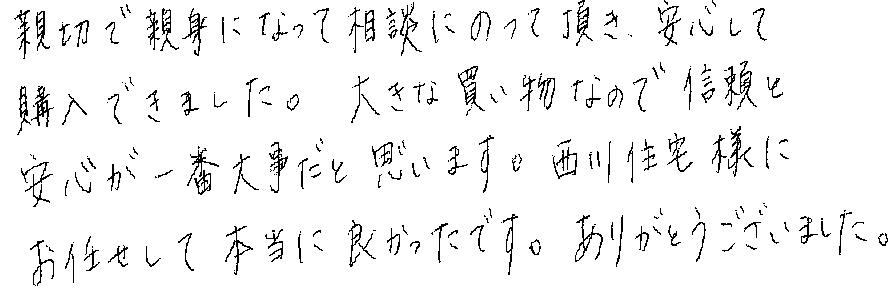 親切で親身になって相談にのって頂き、安心して
購入できました。 大きな買い物なので信頼と
安心が一番大事だと思います。西川住宅様に
お任せして本当に良かったです。ありがとうございました。